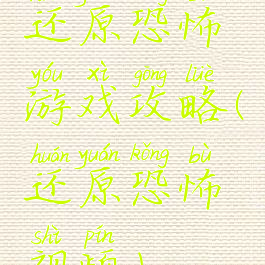 还原恐怖
yóu xì gōng lüè
游戏攻略(
huán yuán kǒng bù
还原恐怖
shì pín
视频)